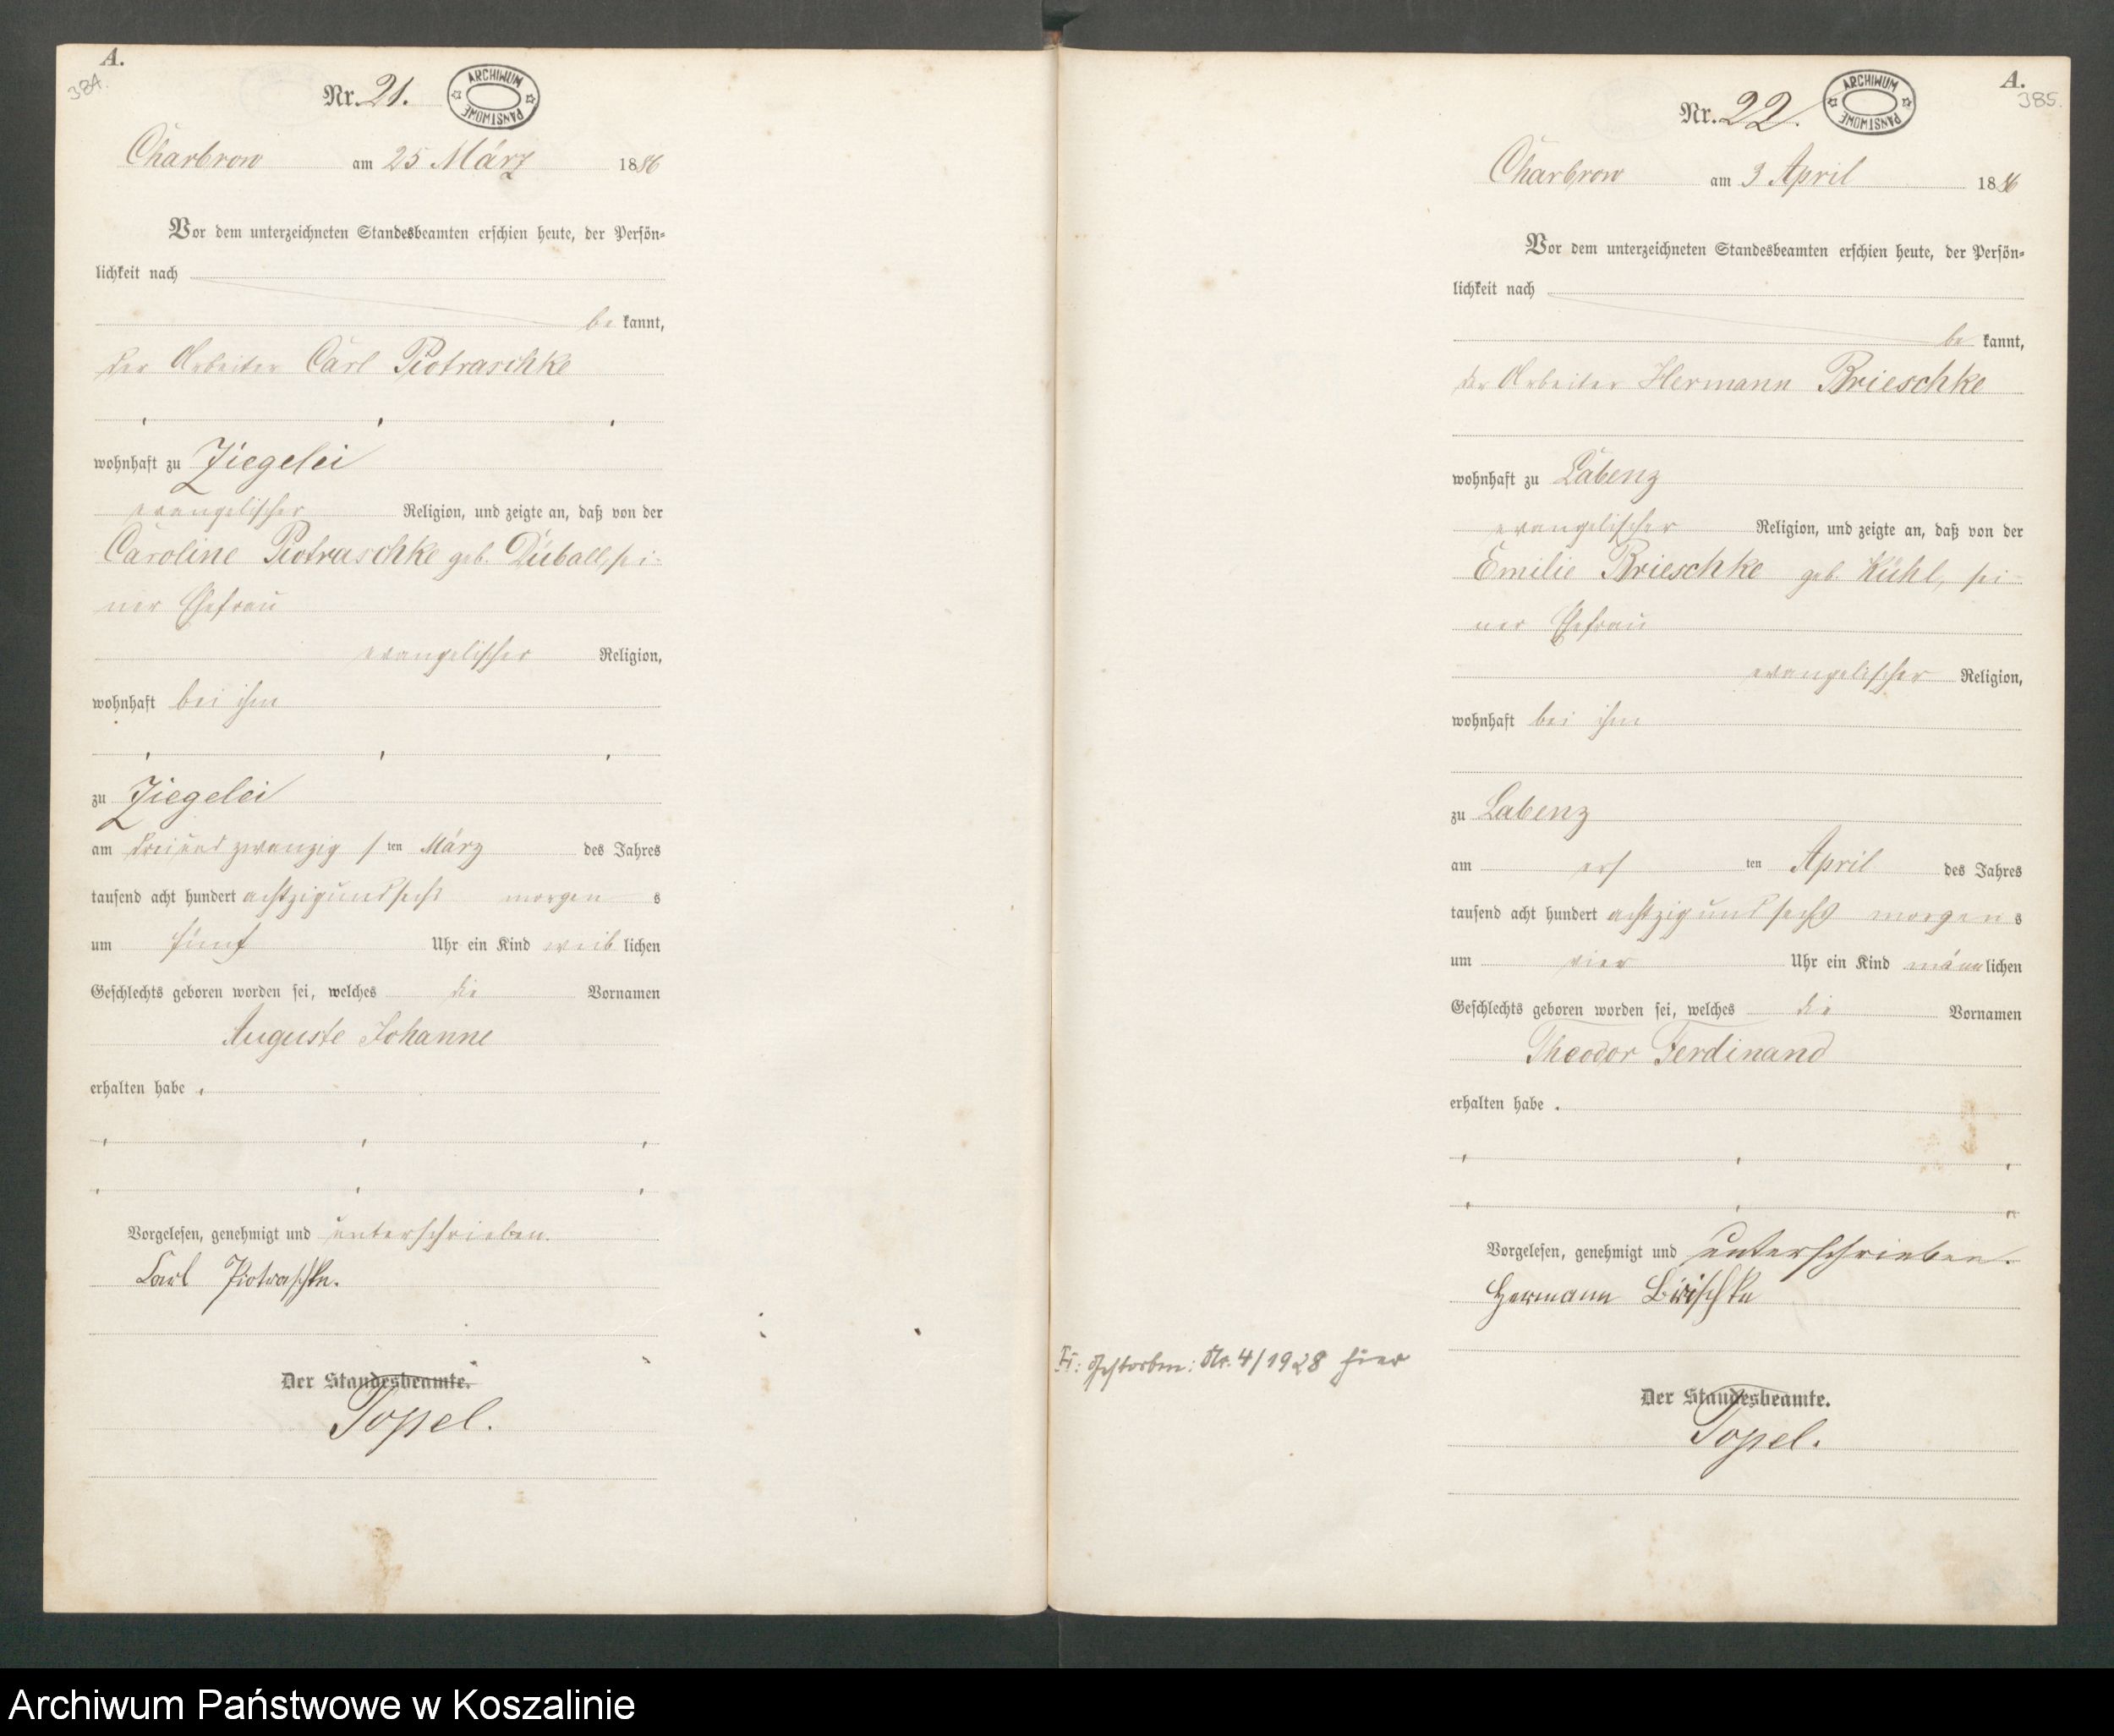 A.
384.
Nr. 21.
ARCHIWUM PAŃSTWOWE
Charbrow am 25 März 1886
Vor dem unterzeichneten Standesbeamten erschien heute, der Persön-
lichkeit nach
be kannt,
der Arbeiter Carl Piotraschke
wohnhaft zu Ziegelei
evangelischer Religion, und zeigte an, daß von der
Caroline Piotraschke geb. Duball, sei-
ner Ehefrau
evangelischer Religion,
wohnhaft bei ihm
zu Ziegelei
am dreiundzwanzigsten März des Jahres
tausend acht hundert achtzigundsechs morgens
um fünf Uhr ein Kind weiblichen
Geschlechts geboren worden sei, welches die Vornamen
Auguste Johanne
erhalten habe.
Vorgelesen, genehmigt und unterschrieben.
Carl Piotraschke.
Der Standesbeamte.
Topel.
A.
385.
Nr. 22.
ARCHIWUM PAŃSTWOWE
Charbrow am 3 April 1886
Vor dem unterzeichneten Standesbeamten erschien heute, der Persön-
lichkeit nach
be kannt,
der Arbeiter Hermann Brieschke
wohnhaft zu Labenz
evangelischer Religion, und zeigte an, daß von der
Emilie Brieschke geb. Kuhl, sei-
ner Ehefrau
evangelischer Religion,
wohnhaft bei ihm
zu Labenz
am ersten April des Jahres
tausend acht hundert achtzigundsechs morgens
um vier Uhr ein Kind männlichen
Geschlechts geboren worden sei, welches die Vornamen
Theodor Ferdinand
erhalten habe.
Vorgelesen, genehmigt und unterschrieben.
Hermann Brischke
gestorben: Nr. 4/1928 hier
Der Standesbeamte.
Topel.
Archiwum Państwowe w Koszalinie